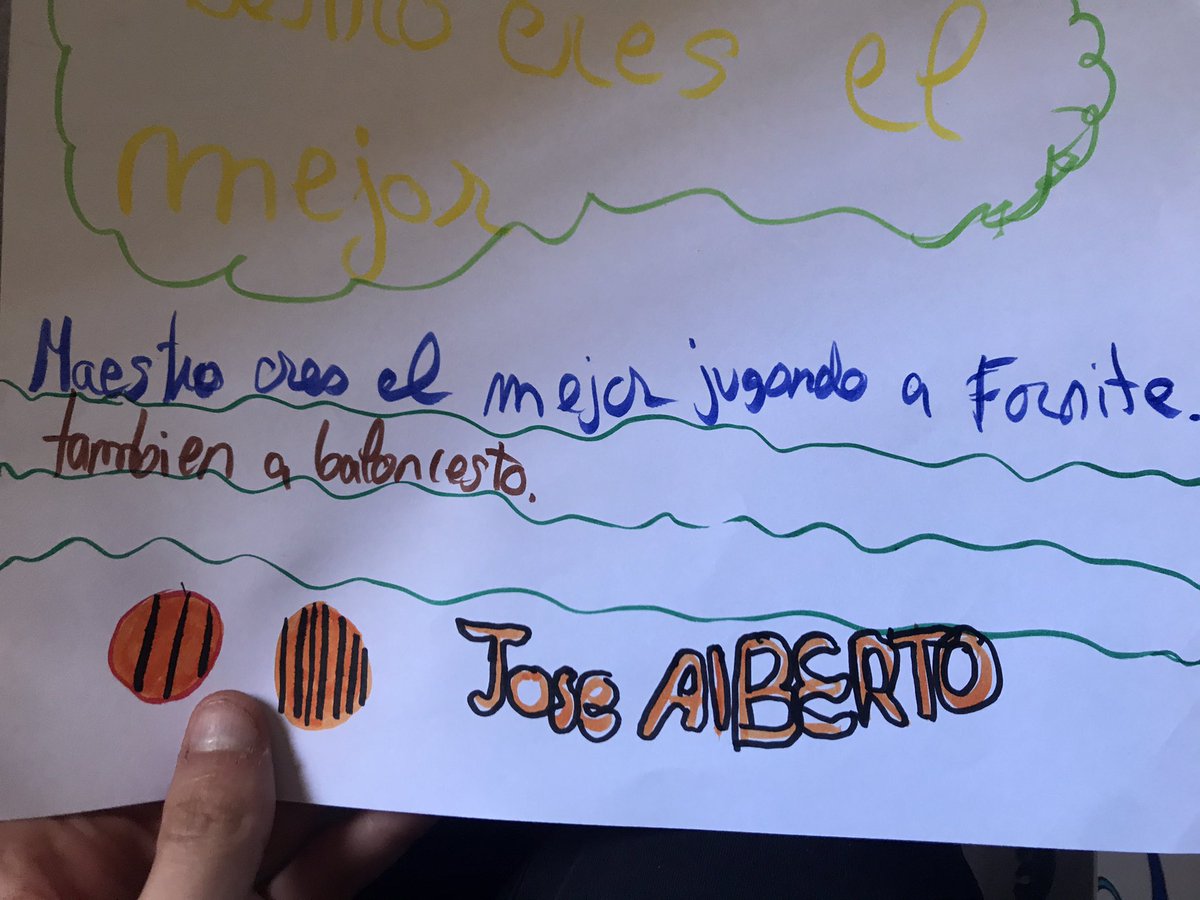 eres el
mejor
Maestro eres el mejor jugando a Fornite.
tambien a baloncesto.
Jose AlBERTO